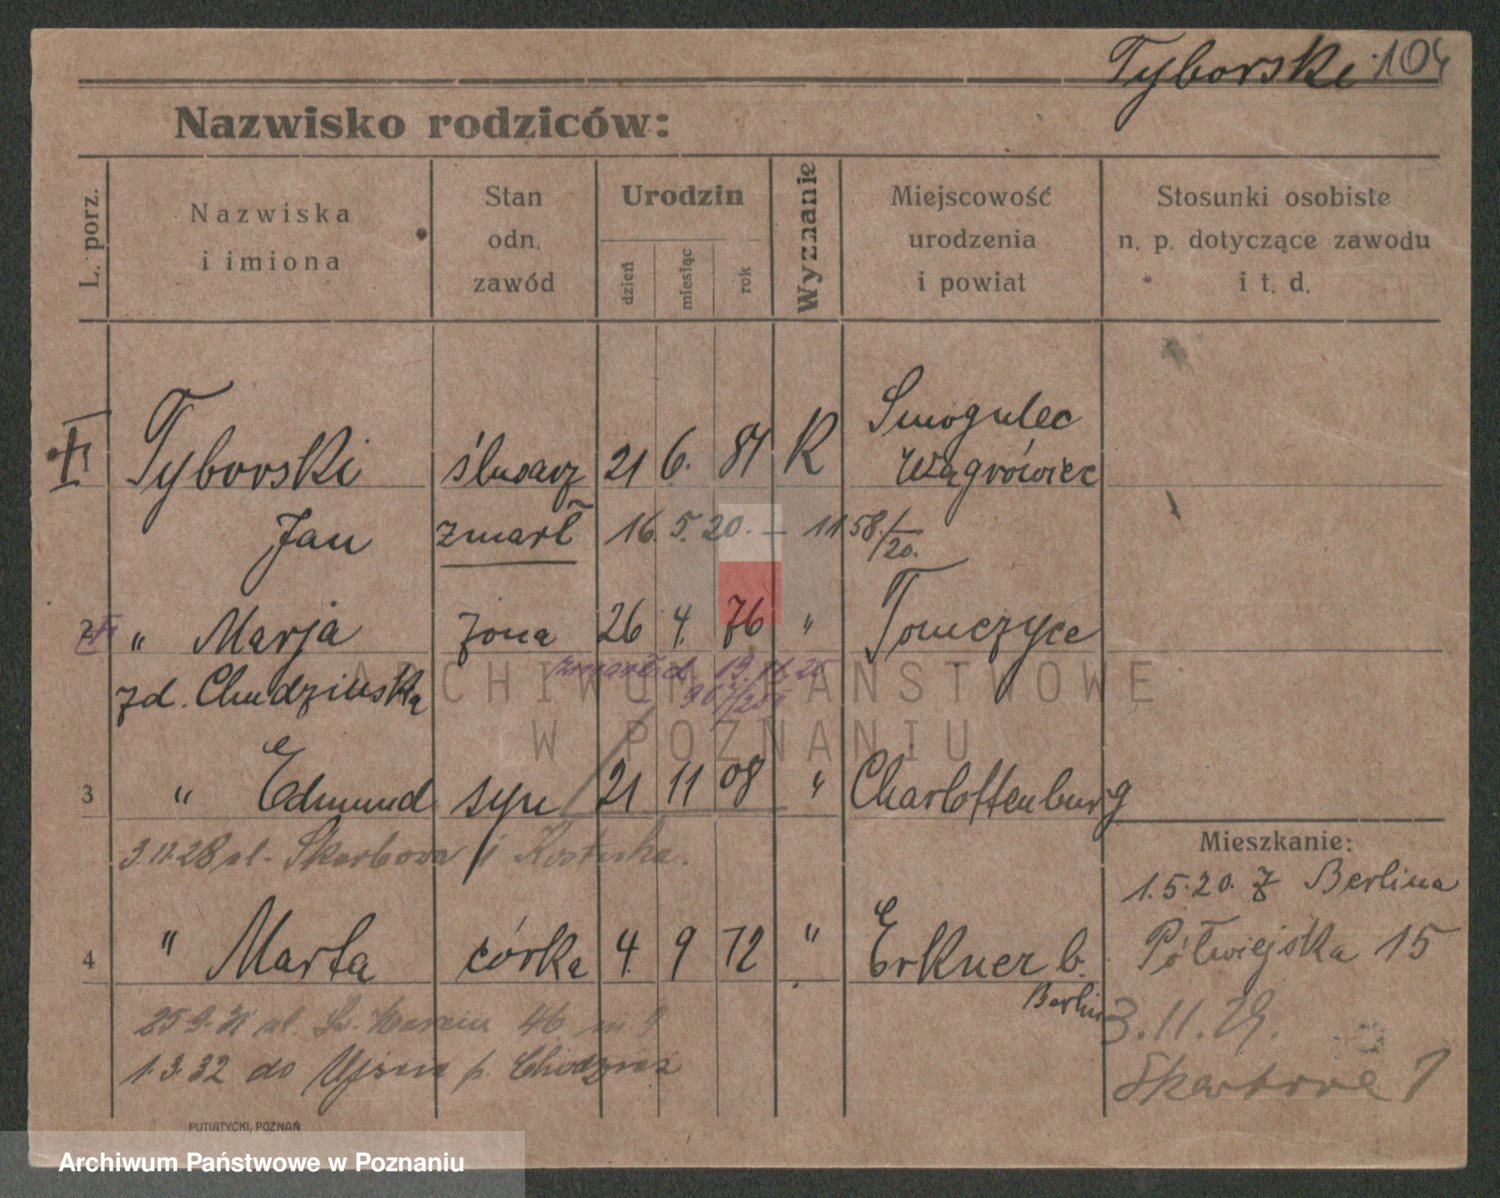 Tyborski 104
Nazwisko rodziców:
L. porz.
Nazwiska
i imiona
Stan
odn.
zawód
Urodzin
dzień
miesiąc
rok
Wyznanie
Miejscowość
urodzenia
i powiat
Stosunki osobiste
n. p. dotyczące zawodu
i t. d.
Tyborski ślusarz 21 6. 84 R Smogulec
Wągrówiec
Jan zmarł 16. 5. 20. — 1158/20.
2 " Marja żona 26 4. 76 " Tomczyce
zd. Chudzińska zmarła d. 19.11.25
3 " Edmund syn 21 11 08 " Charlottenburg
3.11.28 ul. Skarbowa
4 " Marta córka 4. 9 12 " Erkner b.
Berlin
46 m 9
1.3.32 do Ujścia p. Chodzież
Mieszkanie:
1.5.20. z Berlina
Półwiejska 15
3.11.29.
Skarbowa 7
PUTIATYCKI, POZNAŃ
ARCHIWUM PAŃSTWOWE
W POZNANIU
Archiwum Państwowe w Poznaniu